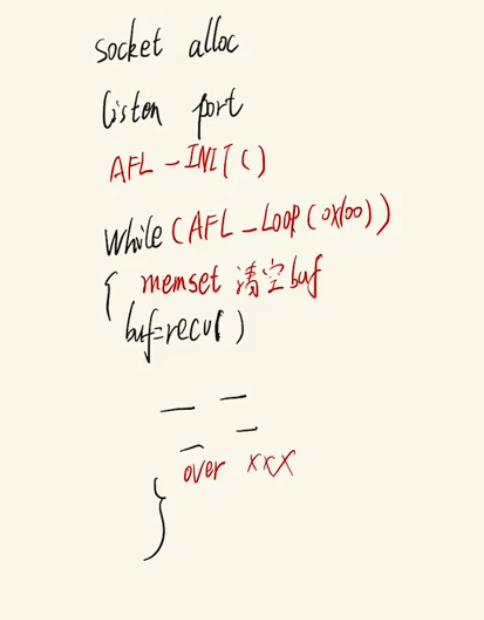 socket alloc
listen port
AFL-INIT()
while(AFL_LOOP(0x100))
{ memset 清空buf
buf=recv()
over xxx
}